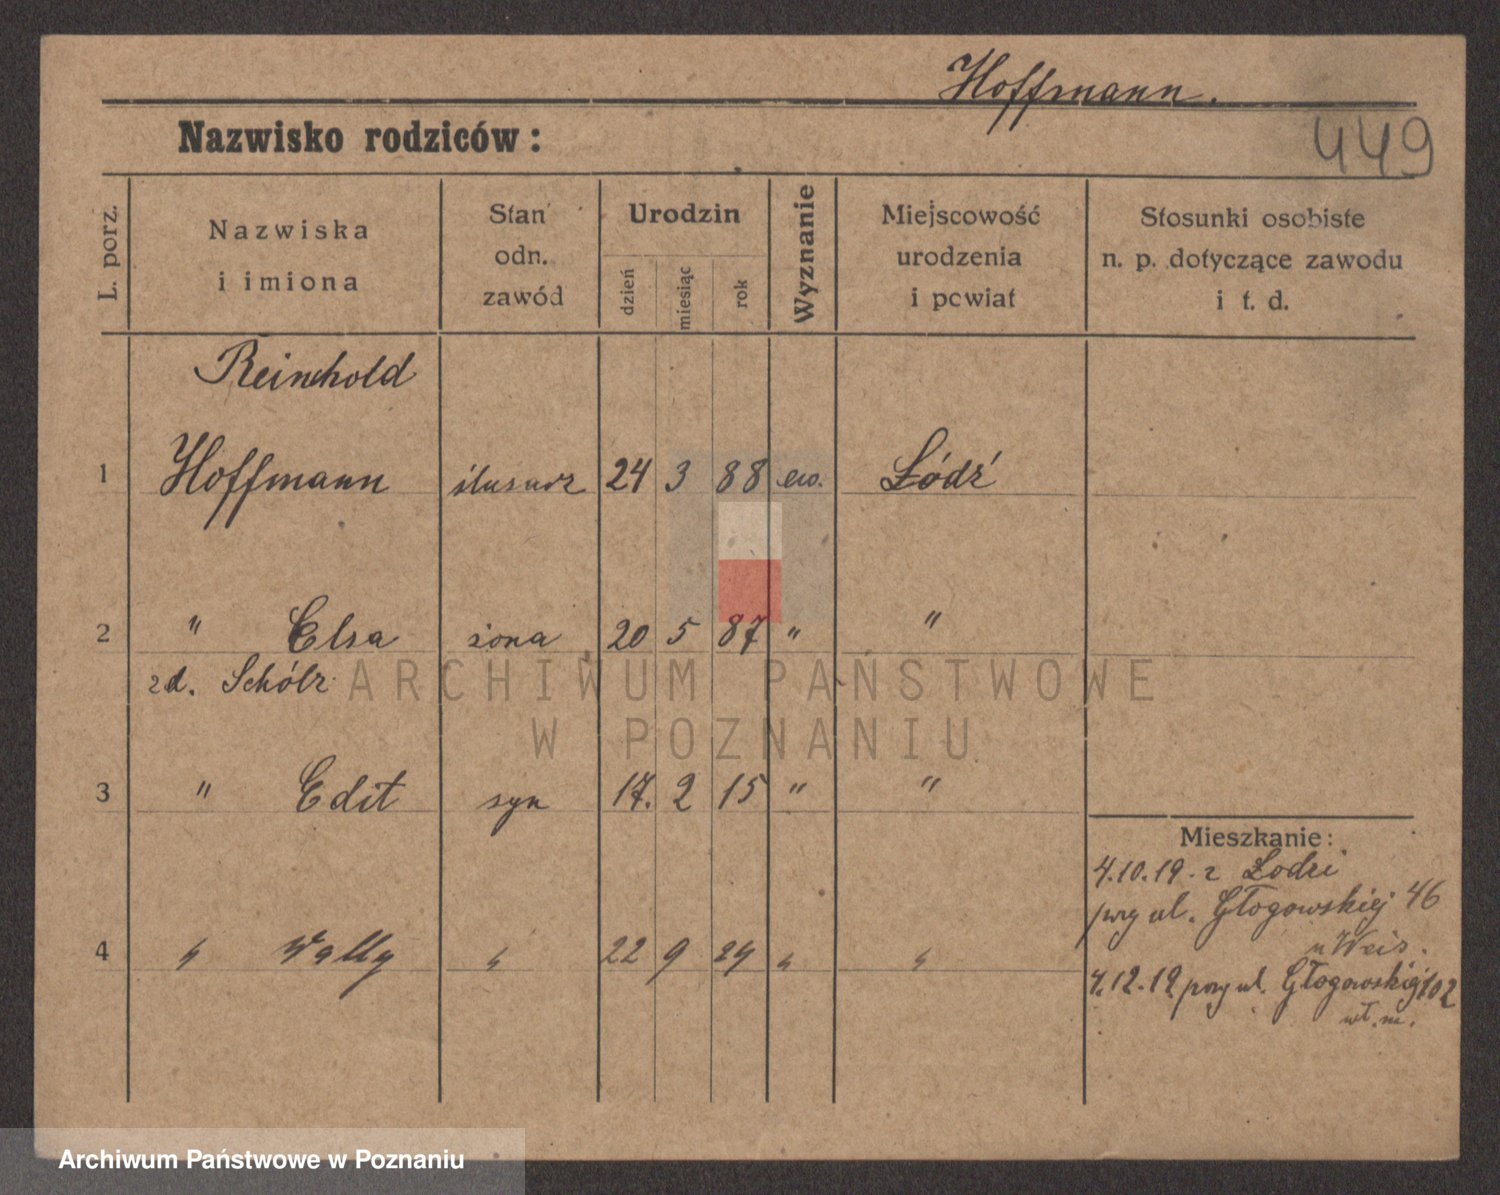 Hoffmann.
Nazwisko rodziców:
449
L. porz.
Nazwiska
i imiona
Stan
odn.
zawód
Urodzin
dzień
miesiąc
rok
Wyznanie
Miejscowość
urodzenia
i powiat
Stosunki osobiste
n. p. dotyczące zawodu
i t. d.
Reinhold
1 Hoffmann ślusarz 24 3 88 ew. Łódź
2 " Elsa żona 20 5 87 " "
zd. Schölz
3 " Edit syn 17. 2 15 " "
4 " Wally " 22 9 24 " "
Mieszkanie:
4.10.19. z Łodzi
przy ul. Głogowskiej 46
u Weis.
4.12.19 przy ul. Głogowskiej 102
wł. m.
ARCHIWUM PAŃSTWOWE
W POZNANIU
Archiwum Państwowe w Poznaniu